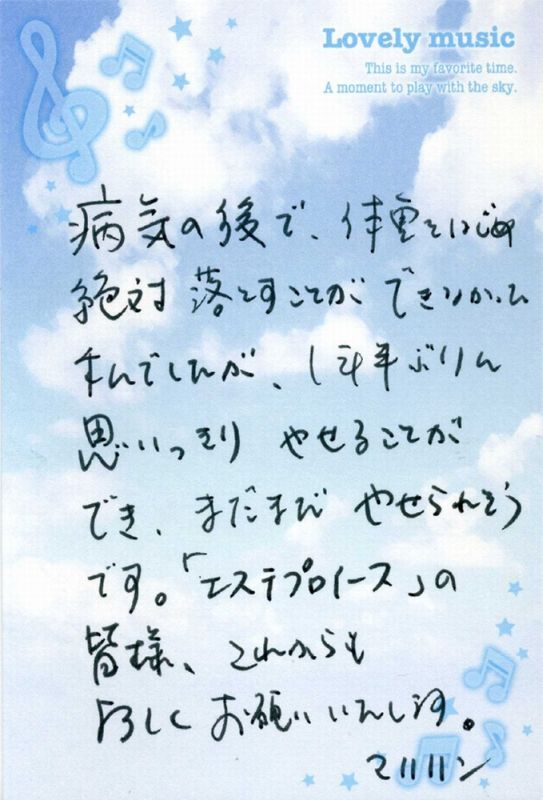 Lovely music
This is my favorite time.
A moment to play with the sky.
病気の後で、体重をはじめ
絶対落とすことができ
んでしたが、年ぶりに
思いっきり やせることが
でき、まだまだ やせられそう
です。「エステプロイース」の
皆様、これからも
よろしく お願いいたします。